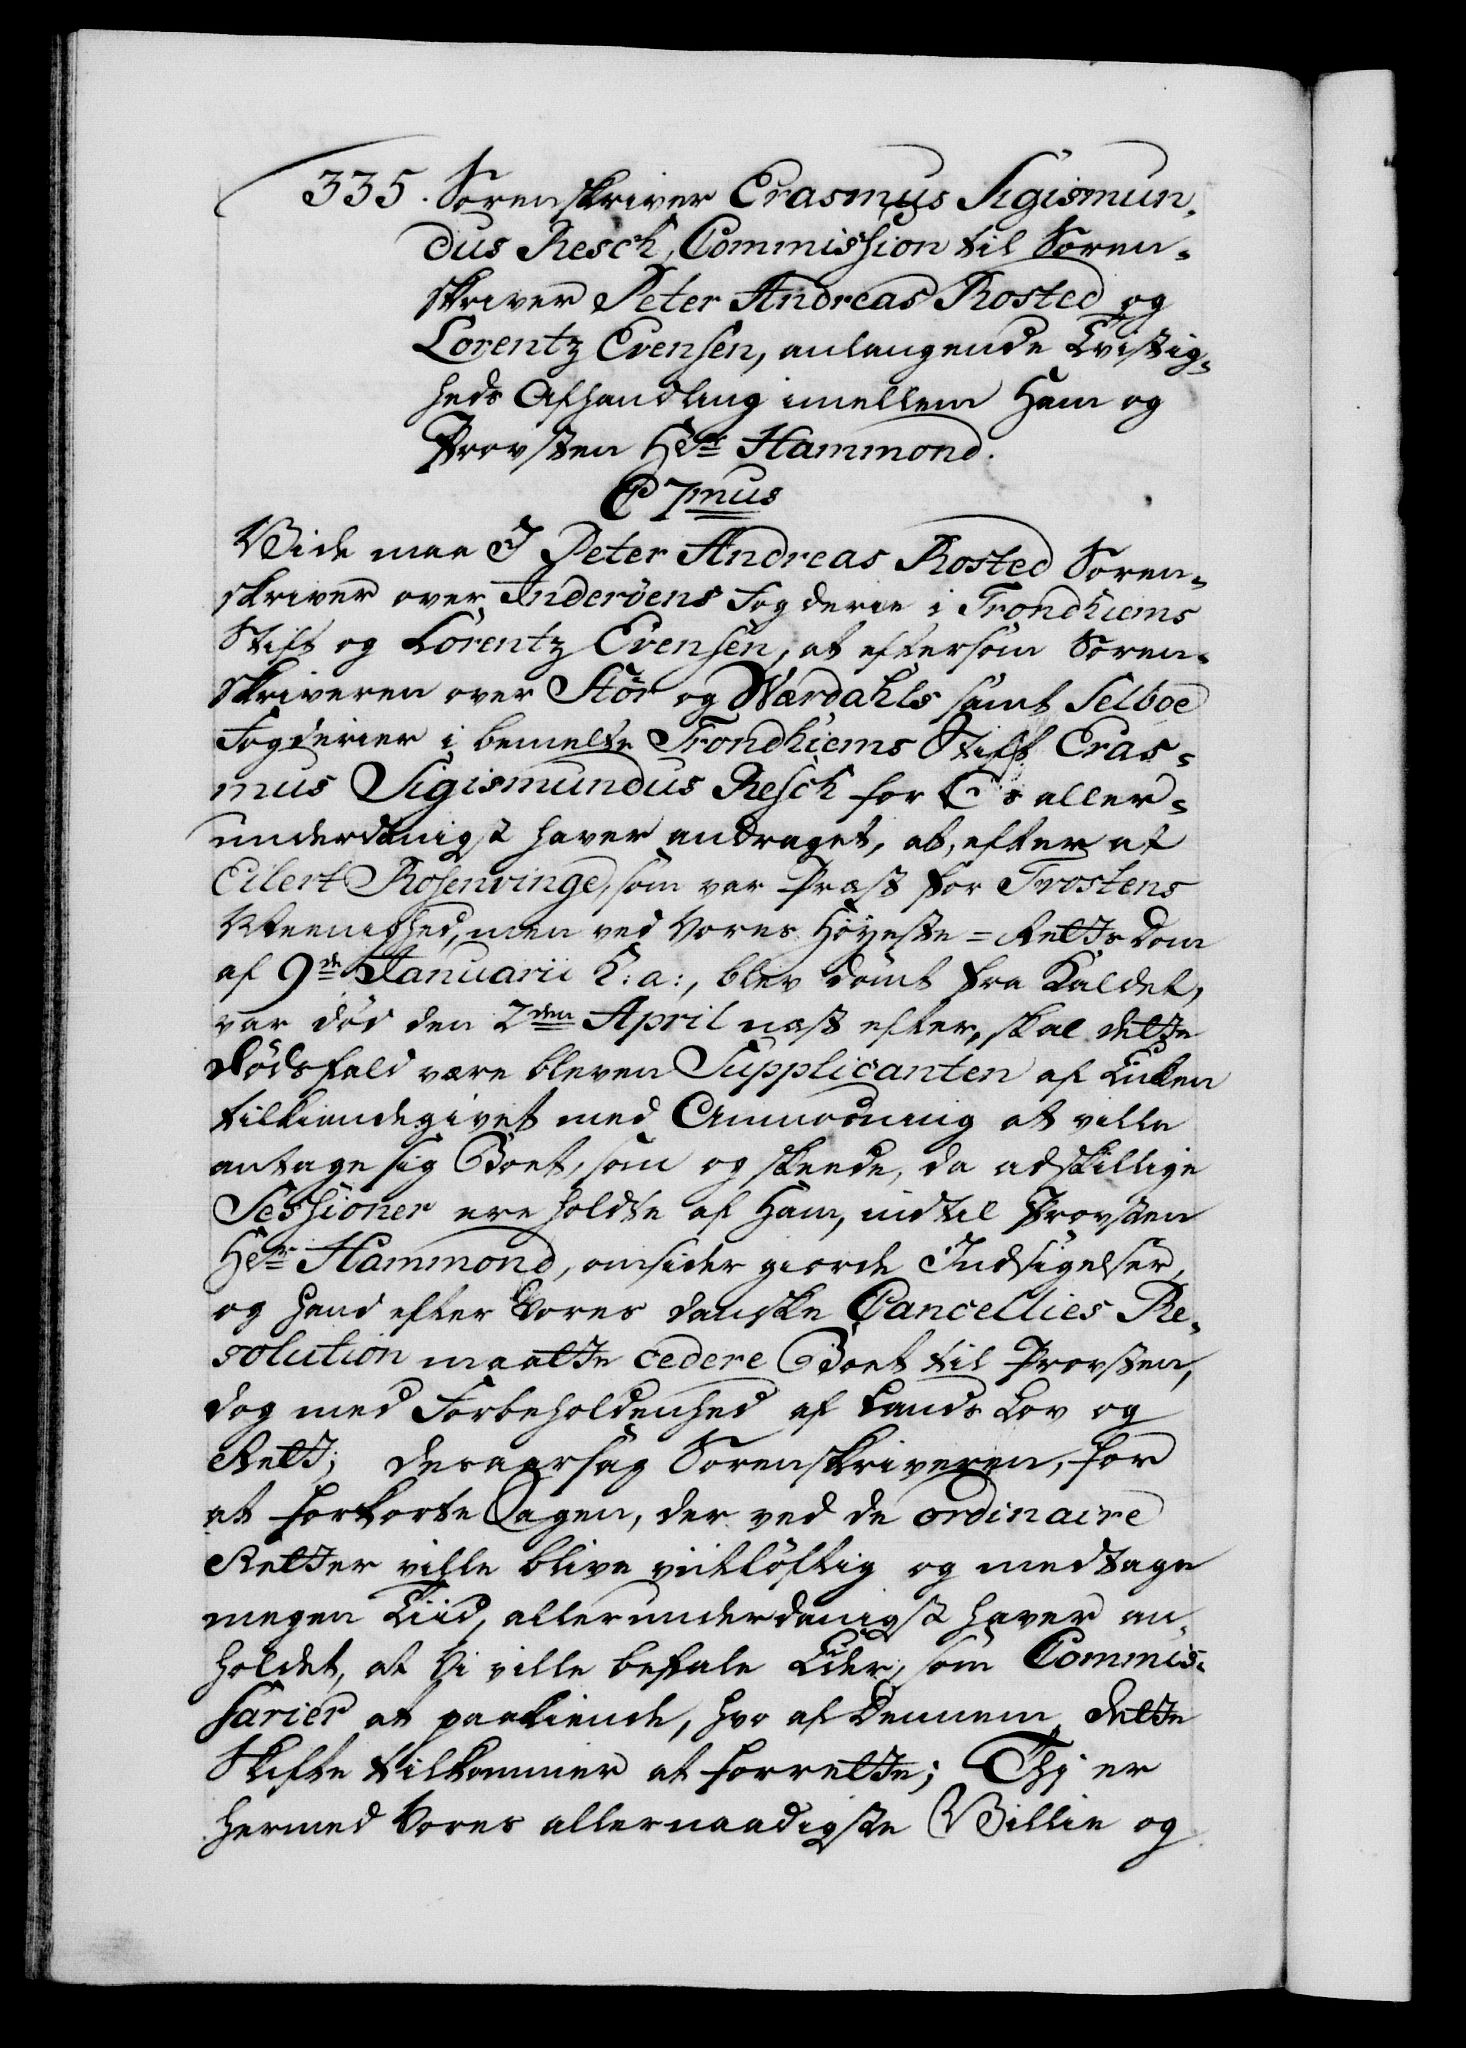 335. Sorenskriver Erasmus Sigismun-
dus Resch, Commission til Soren-
skriver Peter Andreas Rosted og
Lorentz Evensen, anlangende Tvistig-
heds Afhandling imellem Ham og
Provsten Hr Hammond.
C 7mus
Viide maa I Peter Andreas Rosted Soren-
skriver over Inderöens Fogderie i Trondhiems
Stift og Lorentz Evensen, at eftersom Soren-
skriveren over Stör og Værdahls samt Selboe
Fogderier i bemelte Trondhiems Stift Eras-
mus Sigismundus Resch for Os aller-
underdanigst haver andraget, at, efter at
Eilert Rosenvinge, som var Præst for Trostens
Meenighed, men ved Vores Höyeste-Retts Dom
af 9de Januarii h: a:, blev dömt fra Kaldet,
var död den 2den April næst efter, skal dette
Dödsfald være bleven Supplicanten af Enken
tilkiendegivet med Anmodning at ville
antage sig Boet, som og skeede, da adskillige
Sessioner ere holdte af Ham, indtil Provsten
Hr Hammond, omsider giorde Indsigelser,
og hand efter Vores danske Cancellies Re-
solution maatte cedere Boet til Provsten,
dog med Forbeholdenhed af Lands Lov og
Rett; desaarsag Sorenskriveren, for
at forkorte Sagen, der ved de ordinaire
Retter ville blive vitlöftig og medtage
megen Tiid, allerunderdanigst haver an-
holdet, at Vi ville befale Eder, som Commis-
sarier at paakiende, hvo af Dennem dette
Skifte tilkommer at forrette; Thi er
hermed Vores allernaadigste Villie og